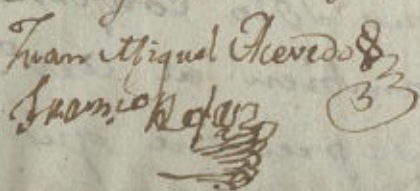 Juan Miguel Acevedo
Franco Rojas